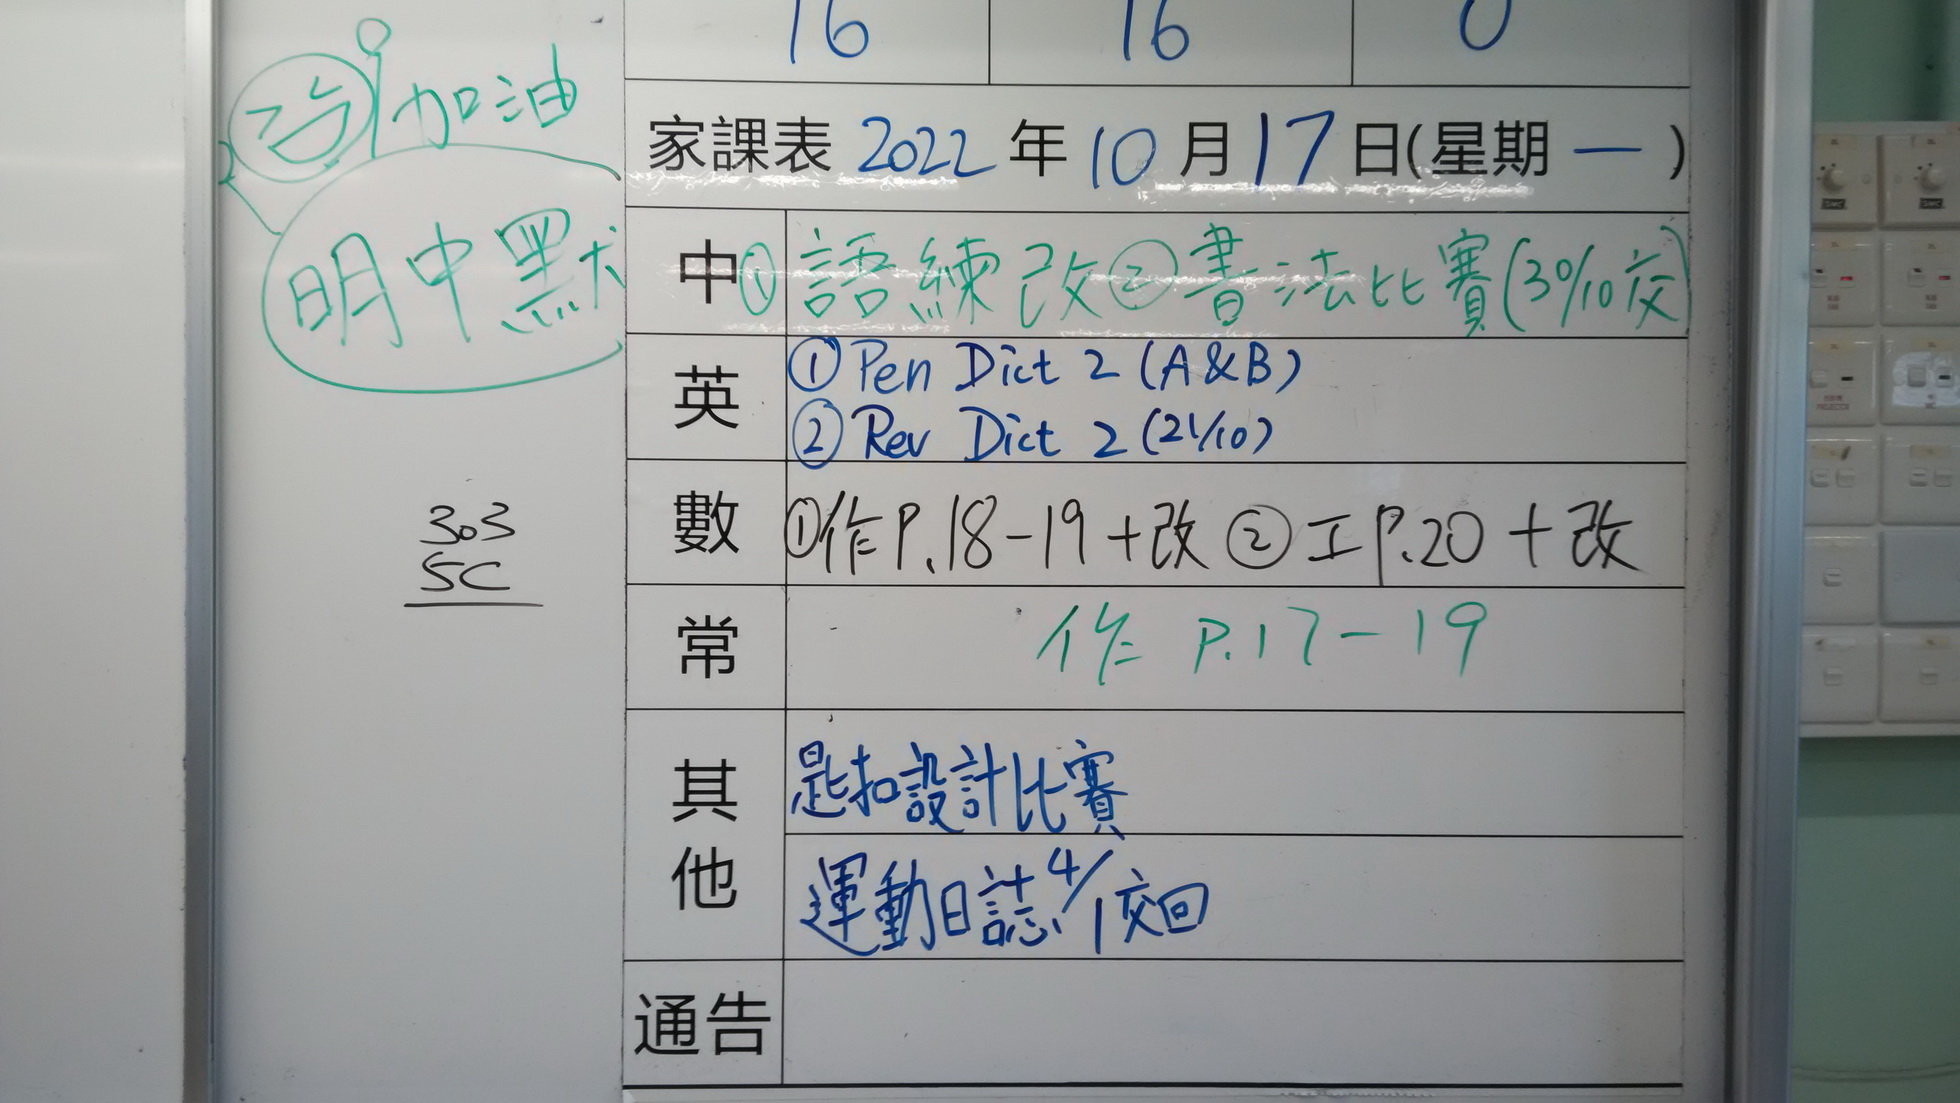 16 16 0
加油
明中默
303
5C
家課表 2022 年 10 月 17 日(星期 一 )
中 ① 語練改 ② 書法比賽(30/10交)
英 ① Pen Dict 2 (A&B)
② Rev Dict 2 (21/10)
數 ①作P.18-19+改 ② 工P.20+改
常 作 P.17-19
其他 匙扣設計比賽
運動日誌 4/1交回
通告